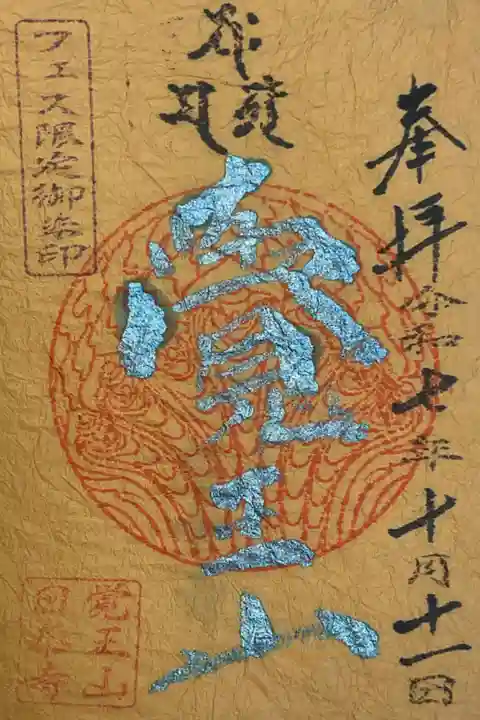 奉拝 令和七年十月十一日
覺王山
フェス限定御朱印
覚王山
日泰寺